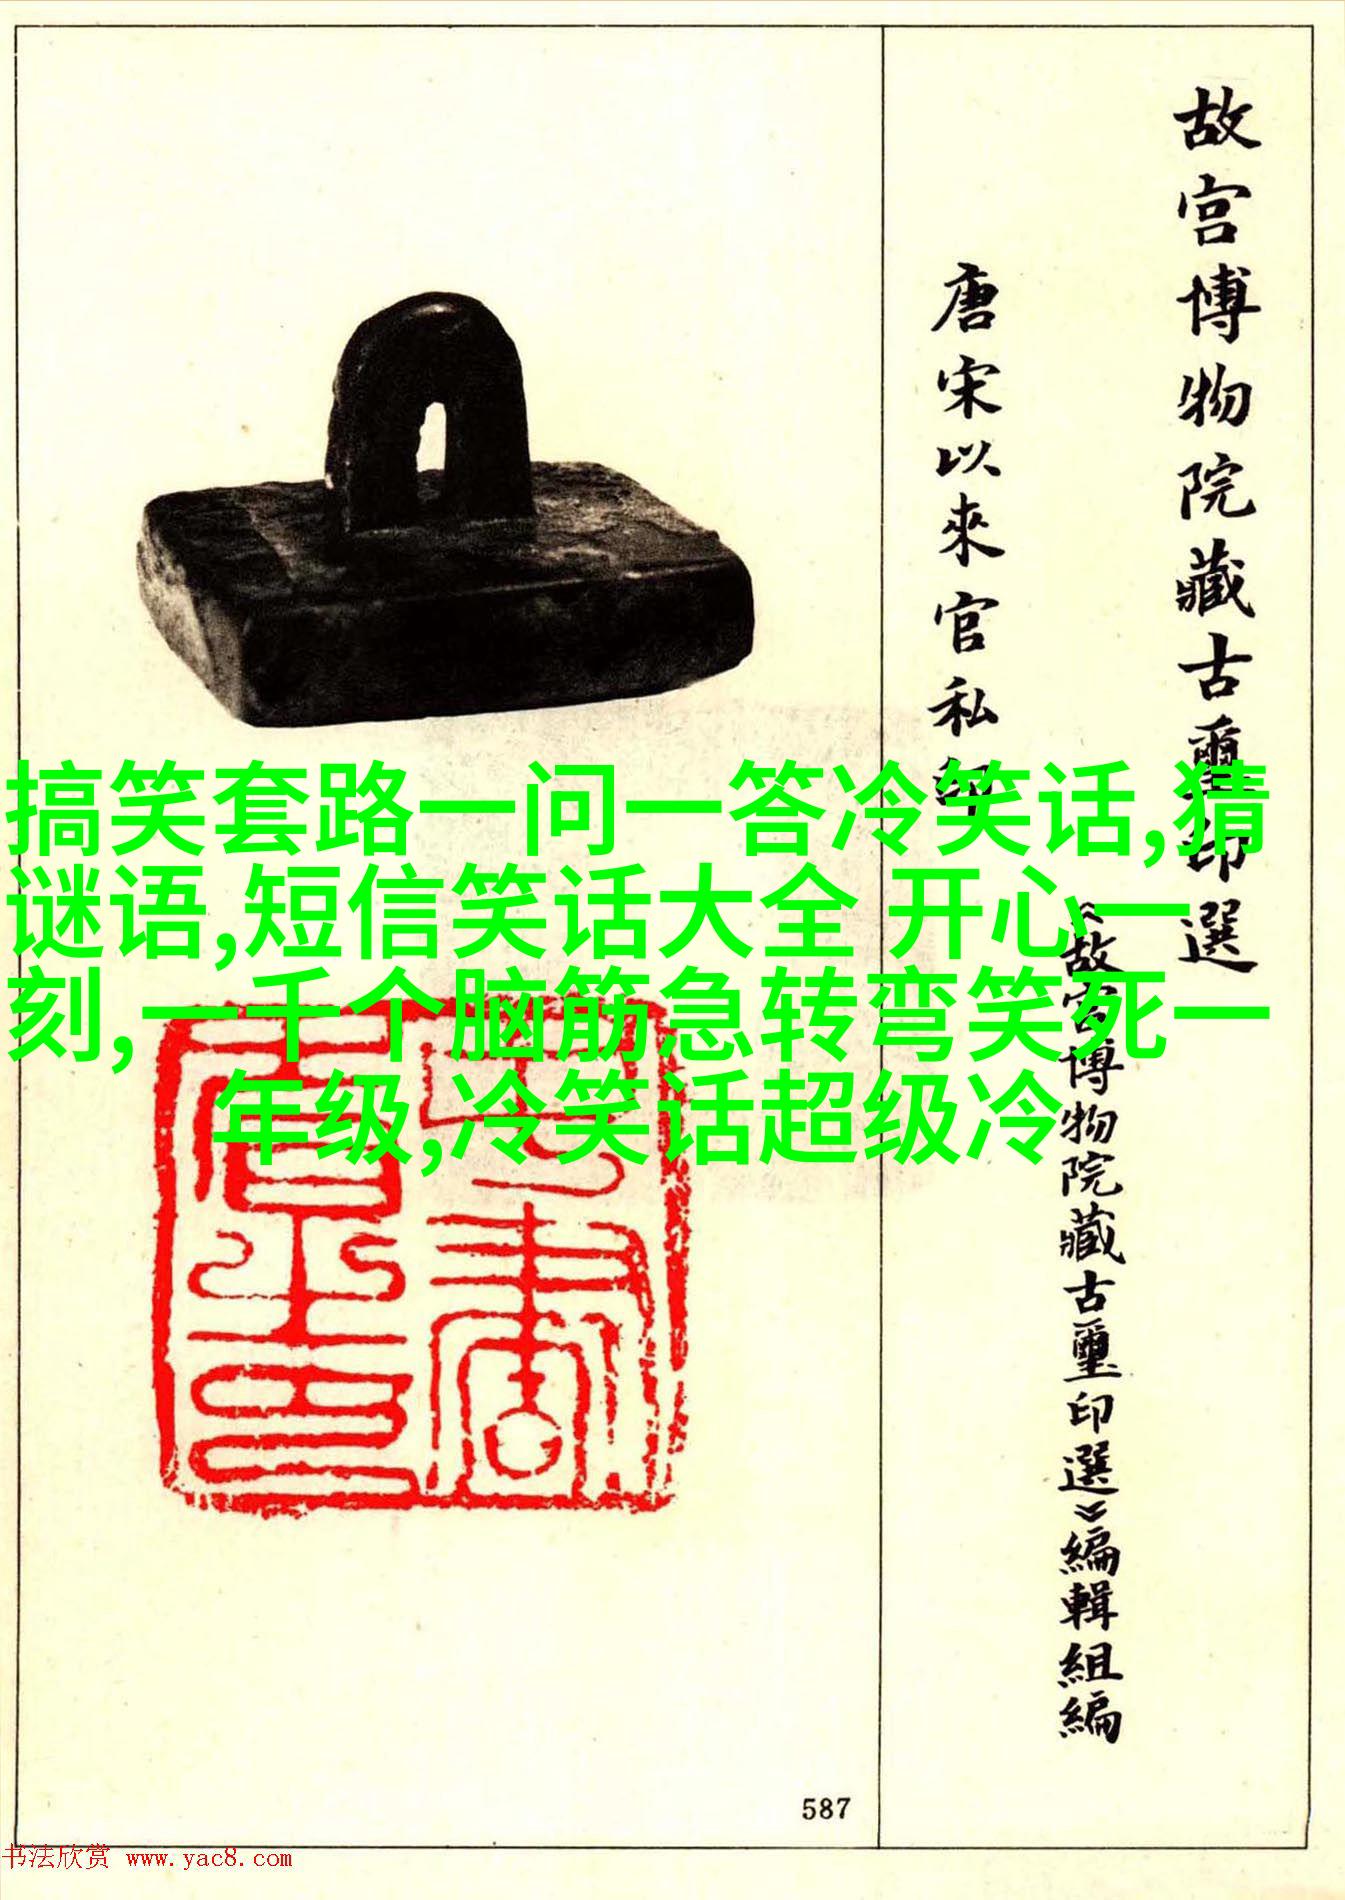 故宮博物院藏古璽印選
《故宮博物院藏古璽印選》編輯組編
唐宋以來官私印
搞笑套路一问一答冷笑话,猜
谜语,短信笑话大全 开心一
刻,一千个脑筋急转弯笑死一
年级,冷笑话超级冷
587
书法欣赏 www.yac8.com